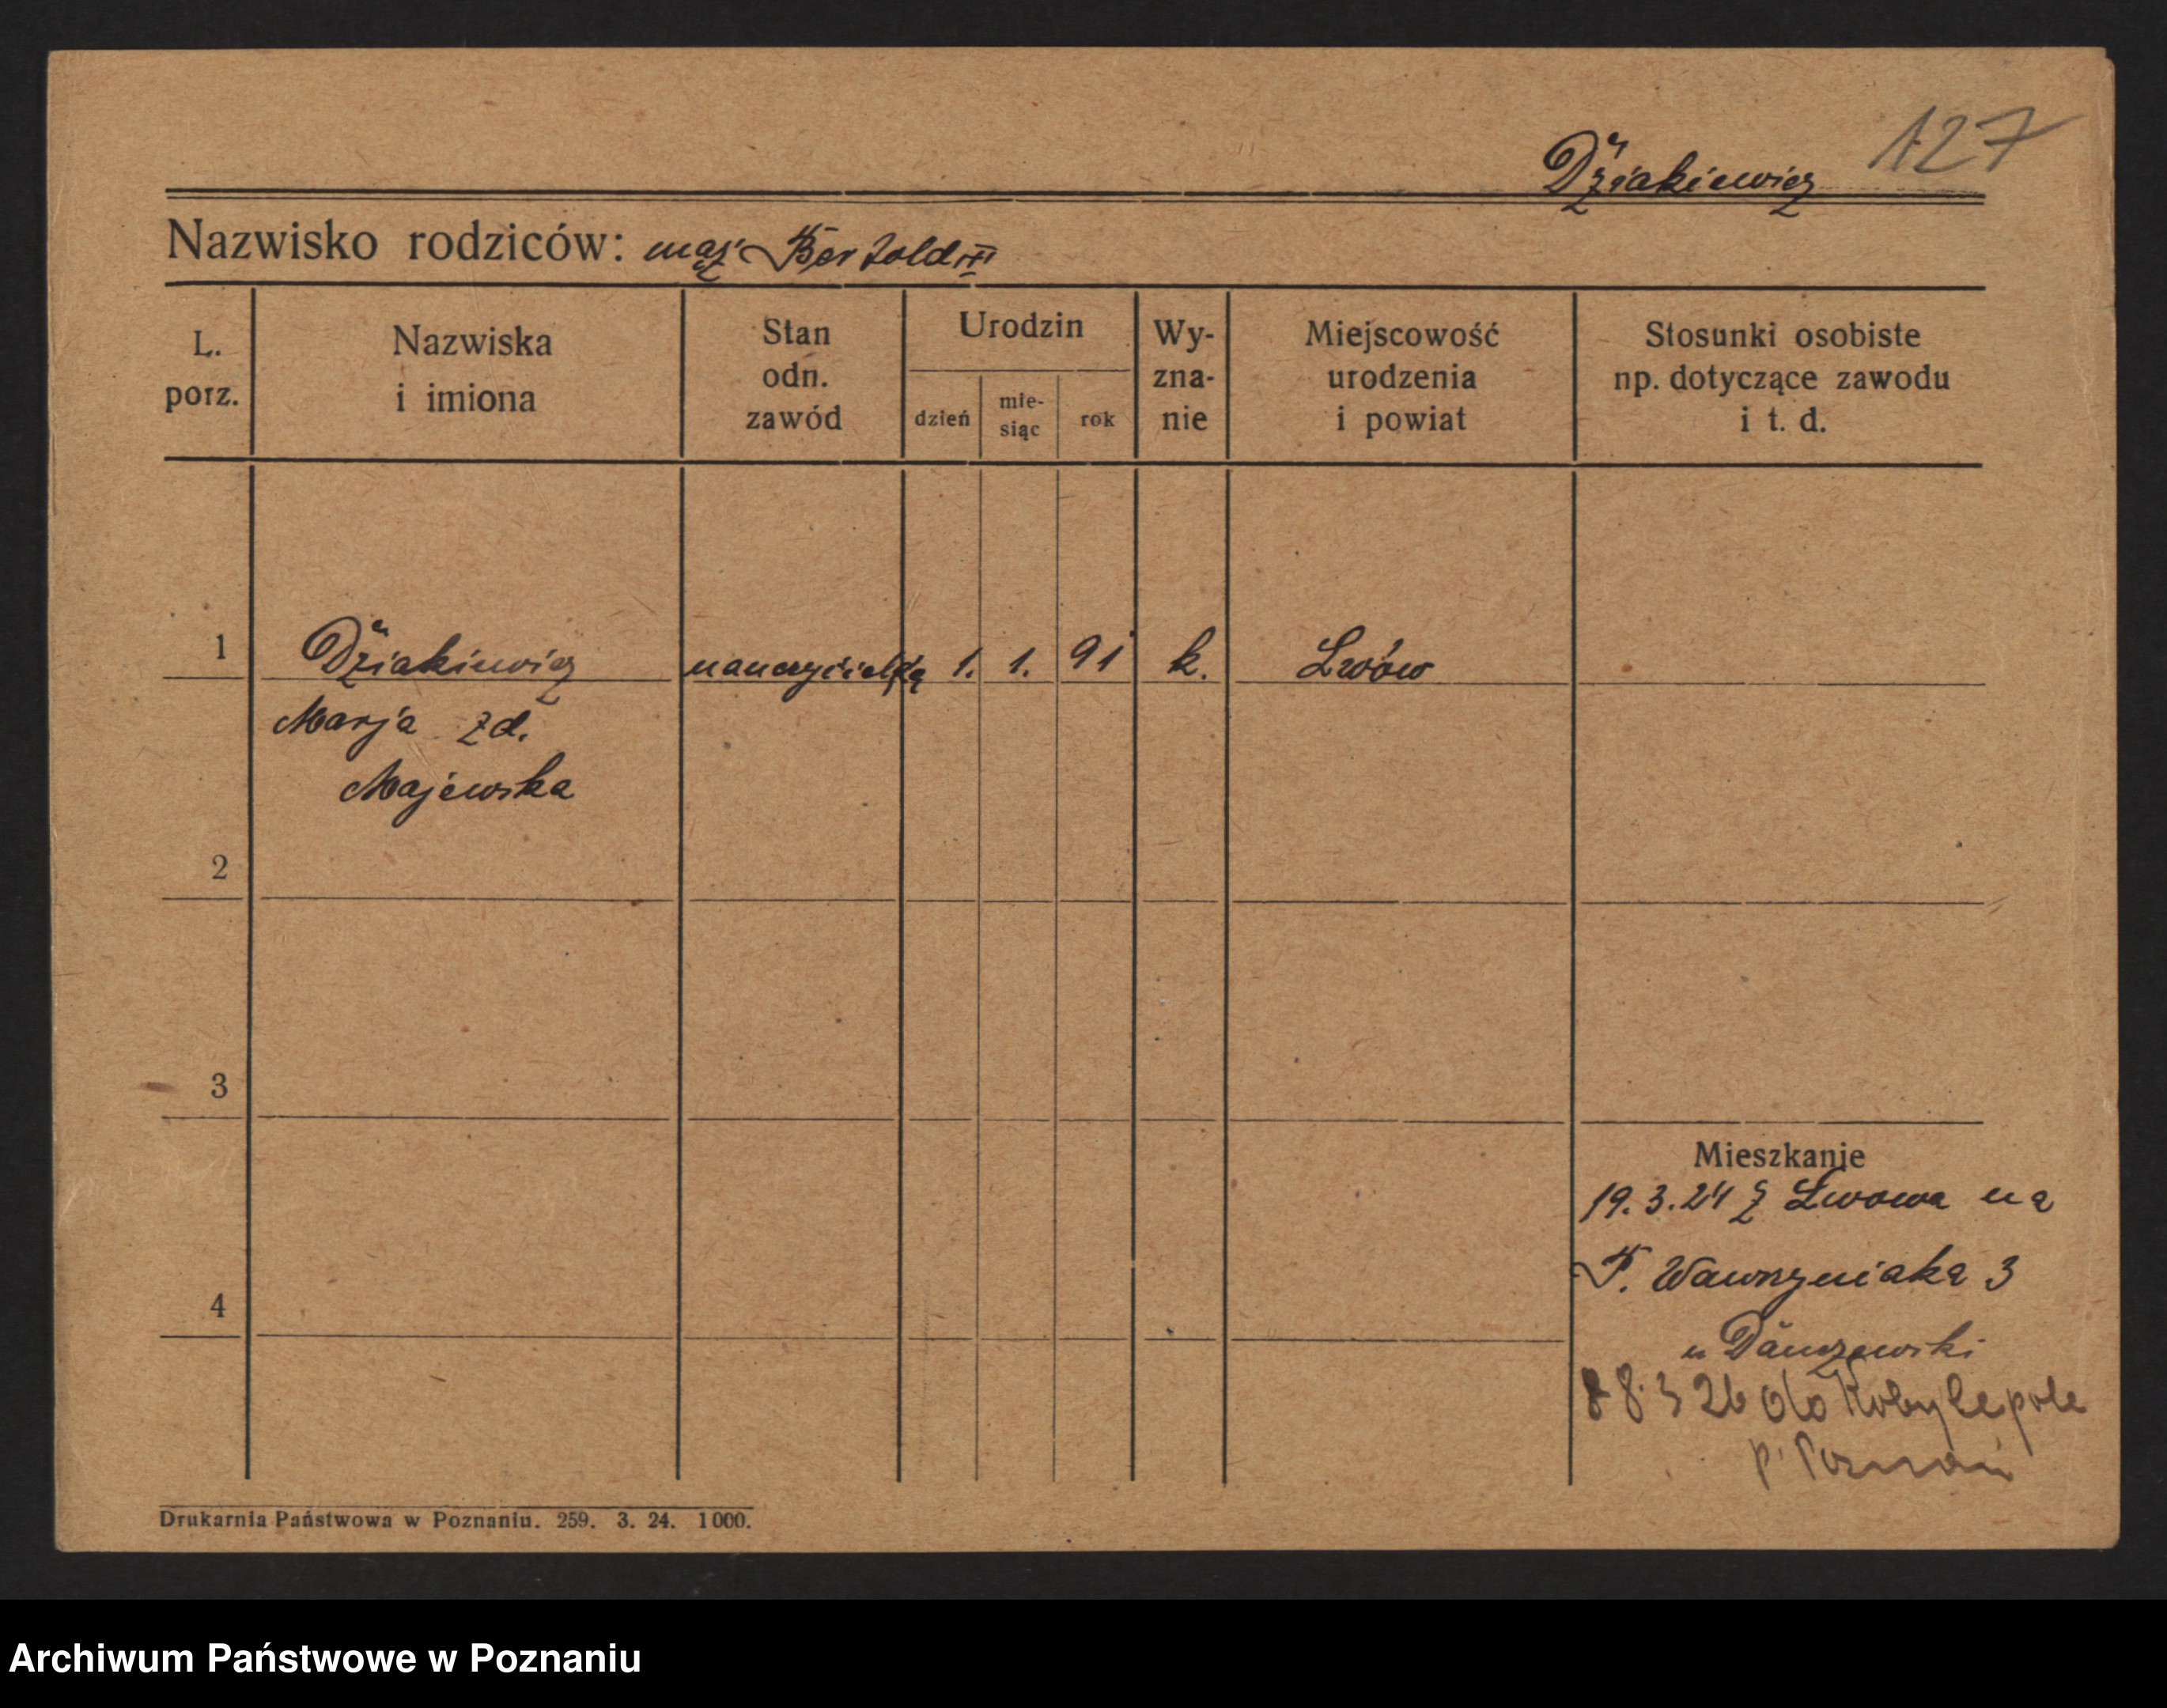 127
Dziakiewicz
Nazwisko rodziców: mąż Bertold
L. porz.
Nazwiska i imiona
Stan odn. zawód
Urodzin
dzień
mie-siąc
rok
Wy-zna-nie
Miejscowość urodzenia i powiat
Stosunki osobiste np. dotyczące zawodu i t. d.
1 Dziakiewicz nauczycielka 1. 1. 91 k. Lwów
Marja zd.
Majewska
2
3
4
Mieszkanie
19.3.24 z Lwowa na
P. Wawrzyniaka 3
u Danczewski
8 3 26 do Kobylepole
p. Poznań
Drukarnia Państwowa w Poznaniu. 259. 3. 24. 1000.
Archiwum Państwowe w Poznaniu